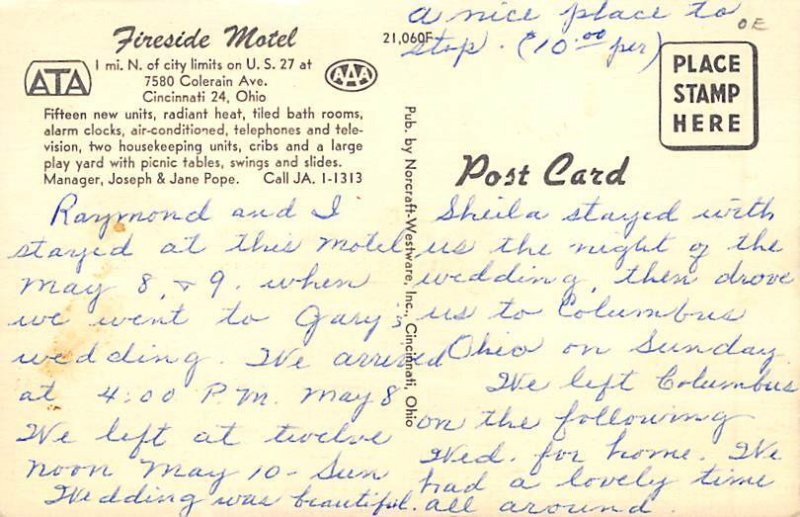 Fireside Motel
ATA
1 mi. N. of city limits on U. S. 27 at
7580 Colerain Ave.
Cincinnati 24, Ohio
AAA
Fifteen new units, radiant heat, tiled bath rooms,
alarm clocks, air-conditioned, telephones and tele-
vision, two housekeeping units, cribs and a large
play yard with picnic tables, swings and slides.
Manager, Joseph & Jane Pope. Call JA. 1-1313
Raymond and I
stayed at this motel
May 8, & 9. when
we went to Gary's
wedding. We arrived
at 4:00 P.M. May 8
We left at twelve
noon May 10 - Sun
Wedding was beautiful.
21,060F
Pub. by Norcraft-Westware, Inc., Cincinnati, Ohio
a nice place to
stop. (10.00 per)
OE
PLACE
STAMP
HERE
Post Card
Sheila stayed with
us the night of the
wedding, then drove
us to Columbus
Ohio on Sunday.
We left Columbus
on the following
Wed. for home. We
had a lovely time
all around.